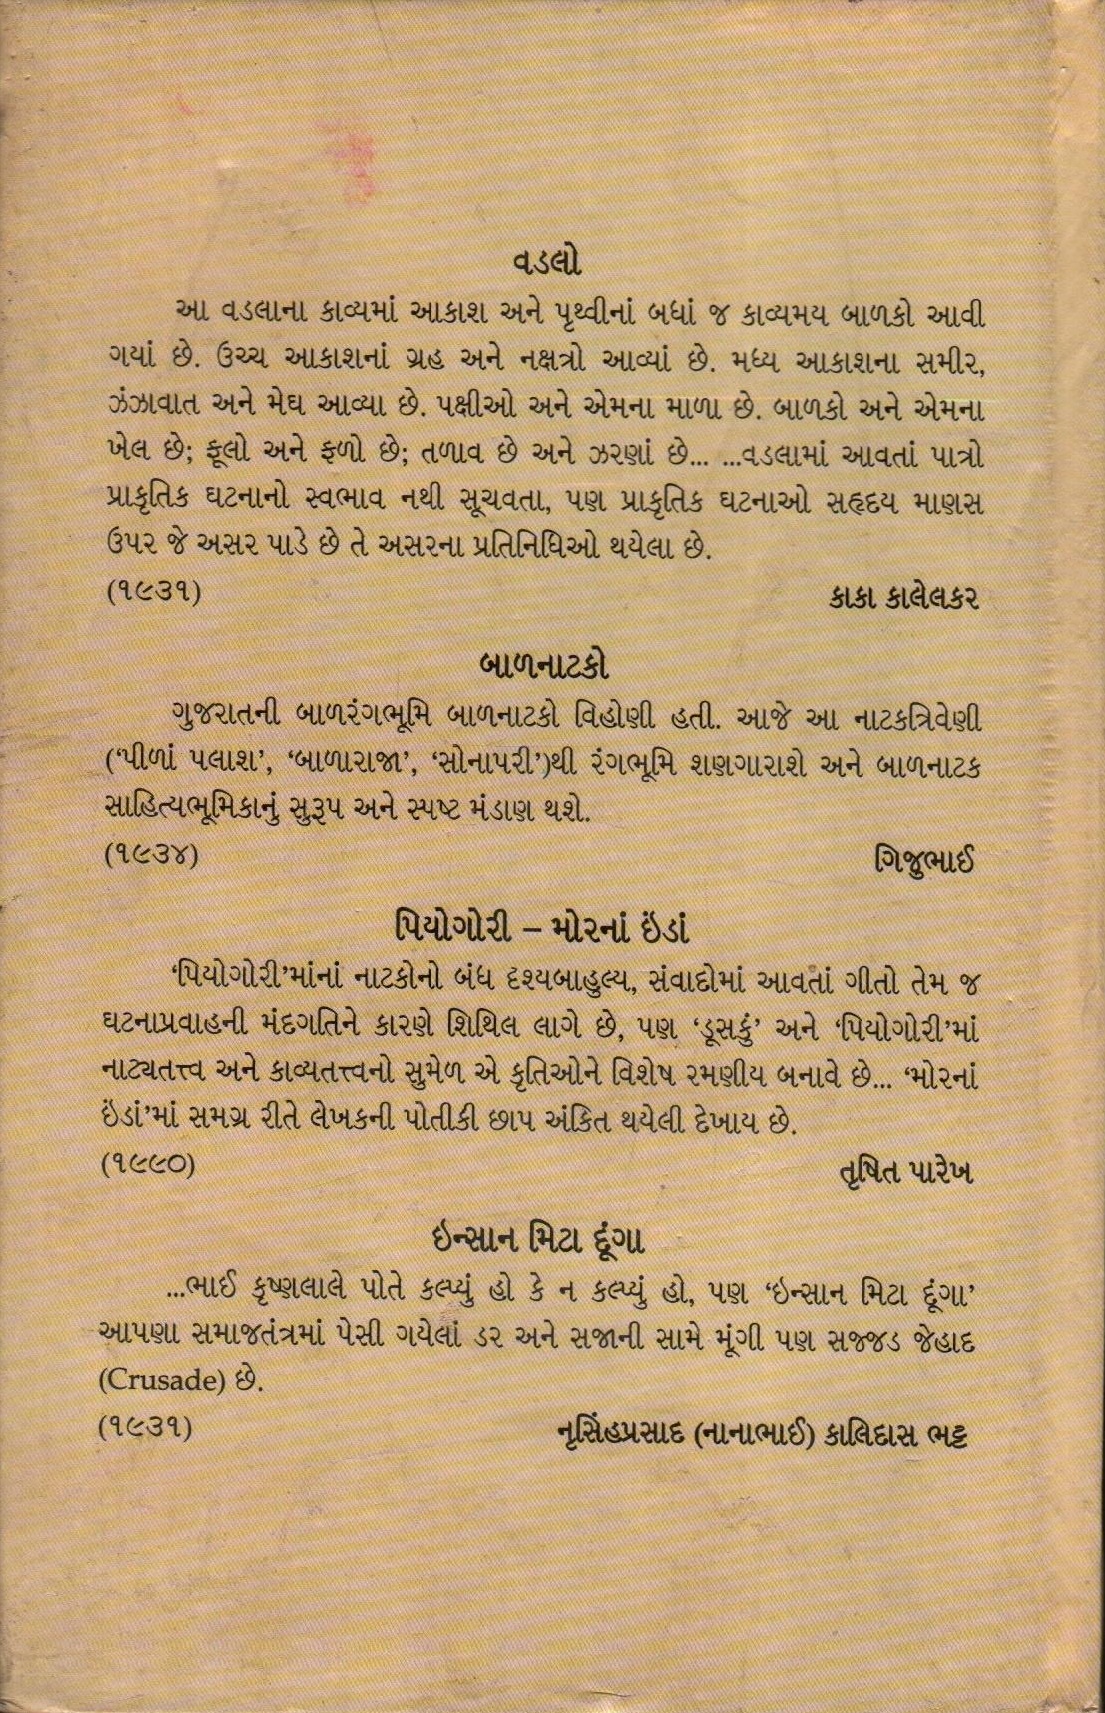 વડલો
આ વડલાના કાવ્યમાં આકાશ અને પૃથ્વીનાં બધાં જ કાવ્યમય બાળકો આવી
ગયાં છે. ઉચ્ચ આકાશનાં ગ્રહ અને નક્ષત્રો આવ્યાં છે. મધ્ય આકાશના સમીર,
ઝંઝાવાત અને મેઘ આવ્યા છે. પક્ષીઓ અને એમના માળા છે. બાળકો અને એમના
ખેલ છે; ફૂલો અને ફળો છે; તળાવ છે અને ઝરણાં છે... ...વડલામાં આવતાં પાત્રો
પ્રાકૃતિક ઘટનાનો સ્વભાવ નથી સૂચવતા, પણ પ્રાકૃતિક ઘટનાઓ સહૃદય માણસ
ઉપર જે અસર પાડે છે તે અસરના પ્રતિનિધિઓ થયેલા છે.
(૧૯૩૧) કાકા કાલેલકર
બાળનાટકો
ગુજરાતની બાળરંગભૂમિ બાળનાટકો વિહોણી હતી. આજે આ નાટકત્રિવેણી
(‘પીળાં પલાશ’, ‘બાળારાજા’, ‘સોનાપરી’)થી રંગભૂમિ શણગારાશે અને બાળનાટક
સાહિત્યભૂમિકાનું સુરૂપ અને સ્પષ્ટ મંડાણ થશે.
(૧૯૩૪) ગિજુભાઈ
પિયોગોરી – મોરનાં ઇંડાં
‘પિયોગોરી’માંનાં નાટકોનો બંધ દૃશ્યબાહુલ્ય, સંવાદોમાં આવતાં ગીતો તેમ જ
ઘટનાપ્રવાહની મંદગતિને કારણે શિથિલ લાગે છે, પણ ‘ડૂસકું’ અને ‘પિયોગોરી’માં
નાટ્યતત્ત્વ અને કાવ્યતત્ત્વનો સુમેળ એ કૃતિઓને વિશેષ રમણીય બનાવે છે... ‘મોરનાં
ઇંડાં’માં સમગ્ર રીતે લેખકની પોતીકી છાપ અંકિત થયેલી દેખાય છે.
(૧૯૯૦) તૃષિત પારેખ
ઇન્સાન મિટા દૂંગા
...ભાઈ કૃષ્ણલાલે પોતે કલ્પ્યું હો કે ન કલ્પ્યું હો, પણ ‘ઇન્સાન મિટા દૂંગા’
આપણા સમાજતંત્રમાં પેસી ગયેલાં ડર અને સજાની સામે મૂંગી પણ સજ્જડ જેહાદ
(Crusade) છે.
(૧૯૩૧) નૃસિંહપ્રસાદ (નાનાભાઈ) કાલિદાસ ભટ્ટ